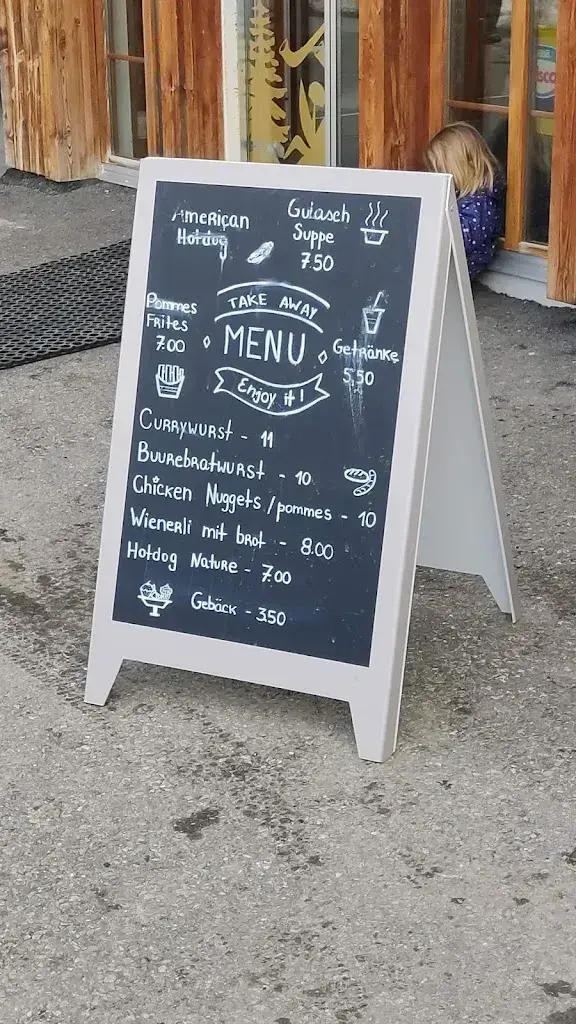 American
Hotdog
Gulasch
Suppe
7.50
TAKE AWAY
MENU
Enjoy it!
Pommes
Frites
7.00
Getränke
5,50
Currywurst - 11
Buurebratwurst - 10
Chicken Nuggets/pommes - 10
Wienerli mit brot - 8.00
Hotdog Nature - 7.00
Gebäck - 3.50